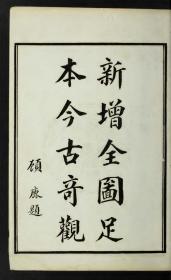 新增全圖足
本今古奇觀
顧 題